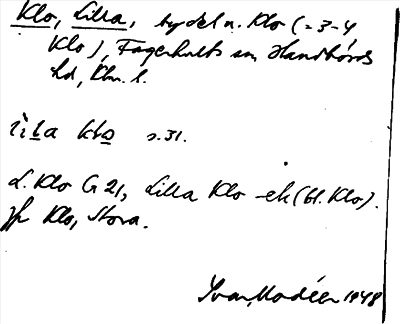 Klo, Lilla, bydel n. Klo (= 3-4
Klo), Fagerhults sn, Handbörds
hd, Klm. l.
lila klo s. 31.
L. Klo G 21, Lilla Klo -ek (bl. Klo).
Jfr Klo, Stora.
Ivar Modéer 1948